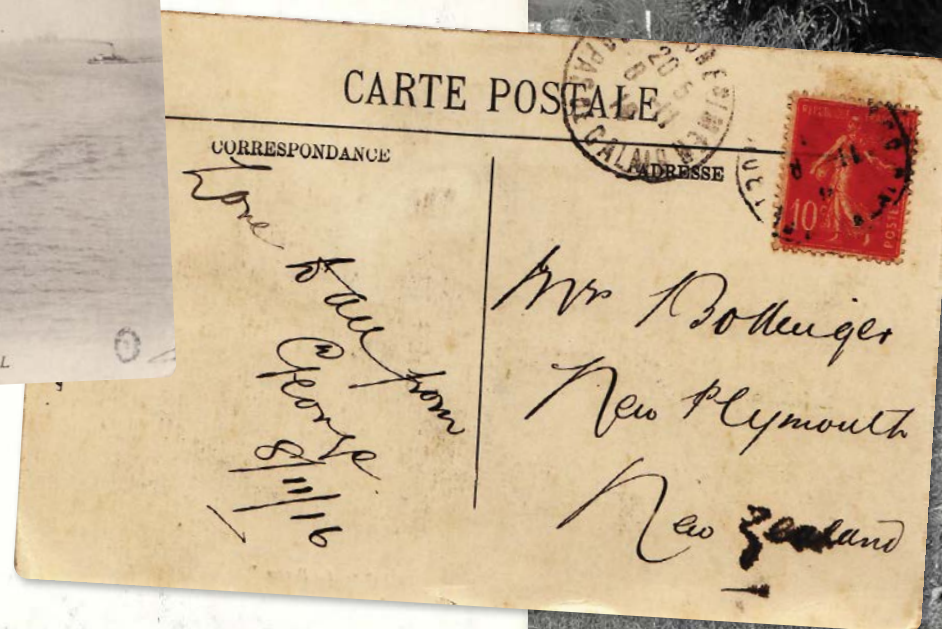 CARTE POSTALE
CORRESPONDANCE
ADRESSE
Love
to all from
George
8/11/16
Mrs Bollinger
New Plymouth
New Zealand
10
POSTES
CALAIS
L